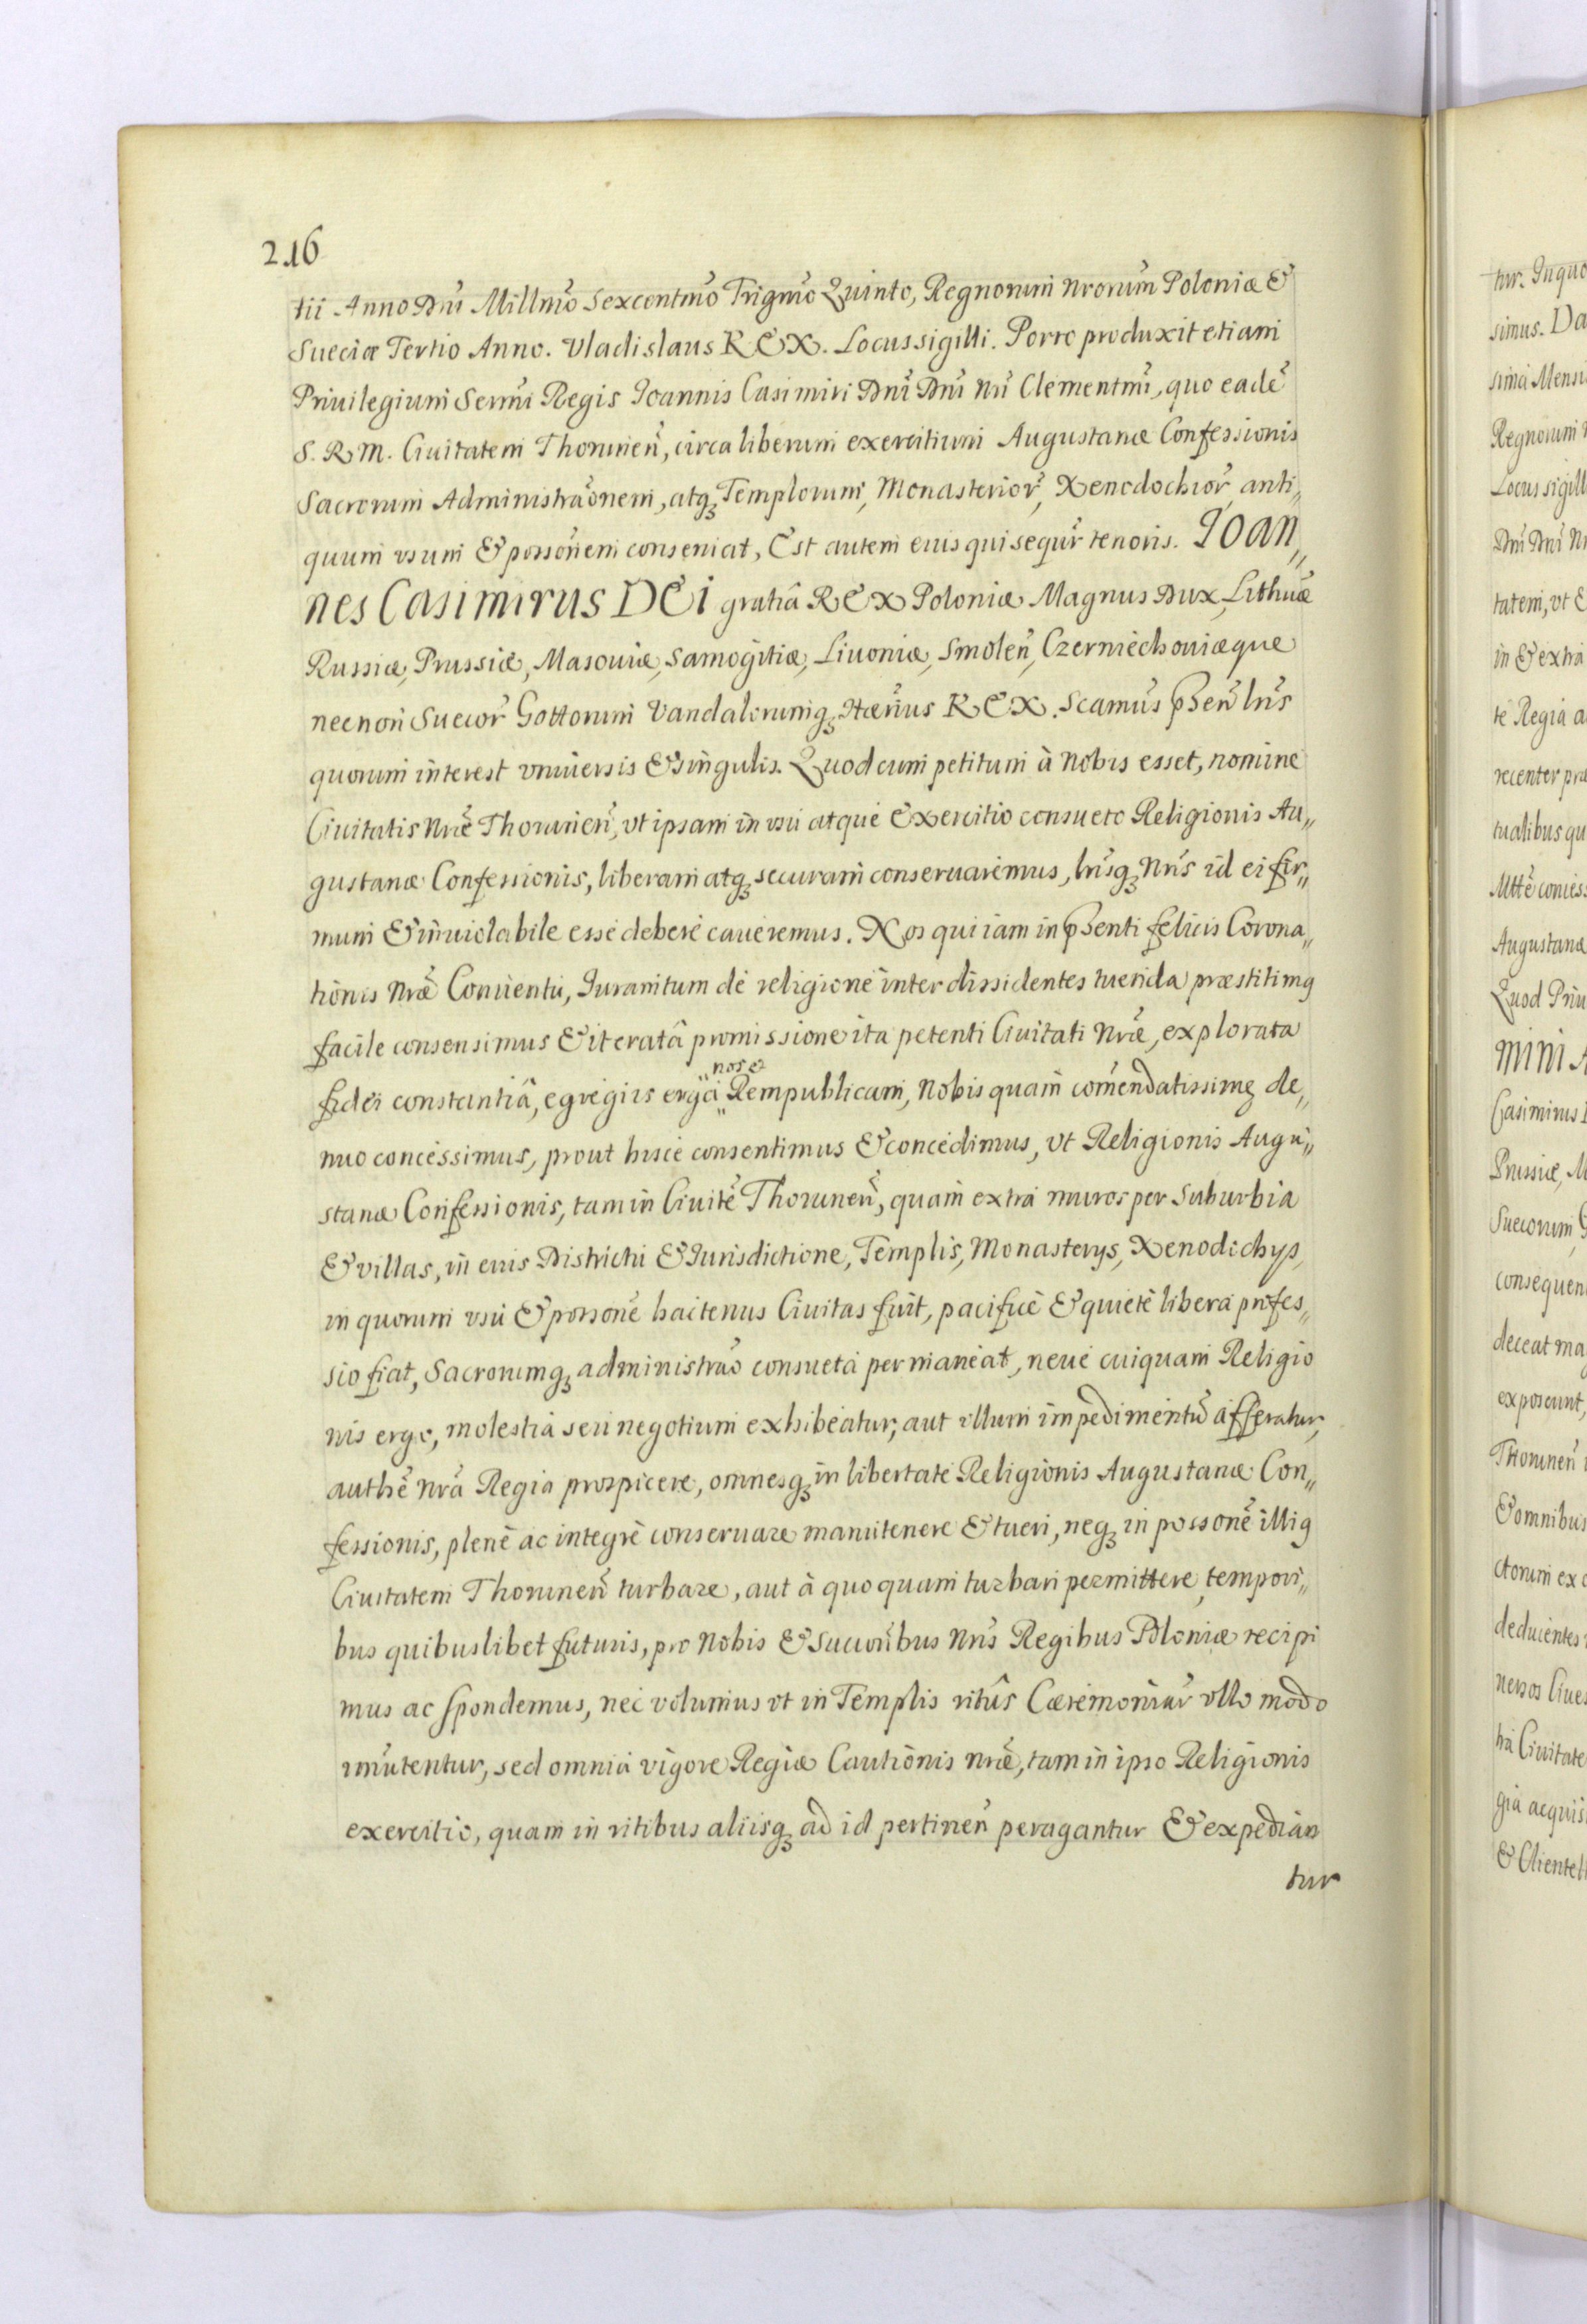 216
tii Anno Dni Millmo Sexcentmo Trigmo Quinto, Regnorum nrorum Poloniæ &
Sueciæ Tertio Anno. Vladislaus REX. Locus sigilli. Porro produxit etiam
Priuilegium Sermi Regis Ioannis Casimiri Dni Dni Ni Clementmi, quo eadē
S. R. M. Ciuitatem Thorunen, circa liberum exercitium Augustanæ Confessionis
Sacrorum Administraonem, atq Templorum, Monasterior, Xenodochior anti„
quum vsum & possonem conseruat, Est autem eius qui sequr tenoris. IOAN„
nes Casimirus DEI gratiâ REX Poloniæ Magnus Dux Lithuæ
Russiæ, Prussiæ, Masouiæ, Samogitiæ, Liuoniæ, Smolen, Czerniechouiæque
necnon Suecor Gottorum Vandalorumq Hærius REX.
quorum interest vniuersis & singulis. Quod cum petitum à Nobis esset, nomine
Ciuitatis Nræ Thorunen, vt ipsam in vsu atque Exercitio consueto Religionis Au„
gustanæ Confessionis, liberam atq securam conseruaremus, lrisq Nris id ei fir„
mum & inuiolabile esse debere caueremus. Nos qui iam in pSenti felicis Corona„
tionis Nræ Conuentu, Iuramtum de religione inter dissidentes tuenda præstitimq
facile consensimus & iteratâ promissione ita petenti Ciuitati Nræ, explorata
fidei constantiâ, egregiis erga „nos & Rempublicam, Nobis quam comendatissimę de„
nuo concessimus, prout hisce consentimus & concedimus, vt Religionis Augu„
stanæ Confessionis, tam in Ciuitē Thorunen, quam extra muros per Suburbia
& villas, in eius Districtu & Iurisdictione, Templis, Monasterys, Xenodichys,
in quorum vsu & possone hactenus Ciuitas fuit, pacificè & quietè libera profes„
sio fiat, Sacrorumq administrao consueta permaneat, neue cuiquam Religio
nis ergo, molestia seu negotium exhibeatur, aut vllum impedimentū afferatur,
authē nra Regia prospicere, omnesq in libertate Religionis Augustanæ Con„
fessionis, plenè ac integrè conseruare manutenere & tueri, neq in possonē illiq
Ciuitatem Thorunen turbare, aut à quoquam turbari permittere, tempori„
bus quibuslibet futuris, pro Nobis & Succoribus Nris Regibus Poloniæ recipi
mus ac spondemus, nec volumus vt in Templis ritûs Cæremoniæ vllo modo
imutentur, sed omnia vigore Regiæ Cautionis nræ, tam in ipso Religionis
exercitio, quam in ritibus aliisq ad id pertinen peragantur & expedian
tur